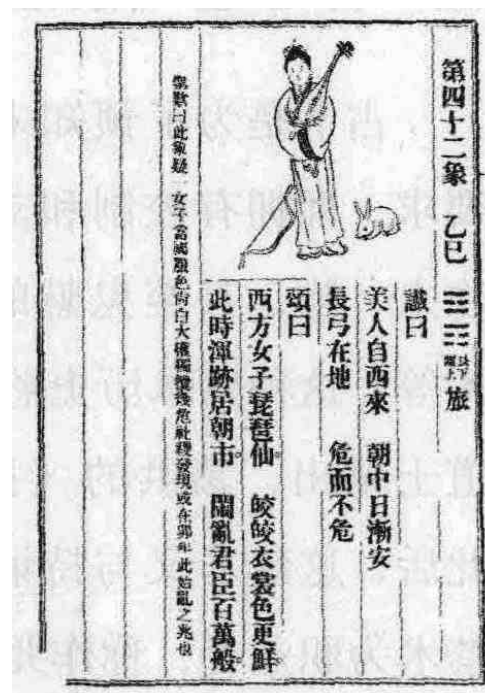 第四十二象 乙巳 艮下離上 旅
讖曰
美人自西來 朝中日漸安
長弓在地 危而不危
頌曰
西方女子琵琶仙。 皎皎衣裳色更鮮。
此時渾跡居朝市。 鬧亂君臣百萬般。
聖歎曰此象疑一女子當國服色尚白大權獨攬幾危社稷發現或在卯年此始亂之兆也